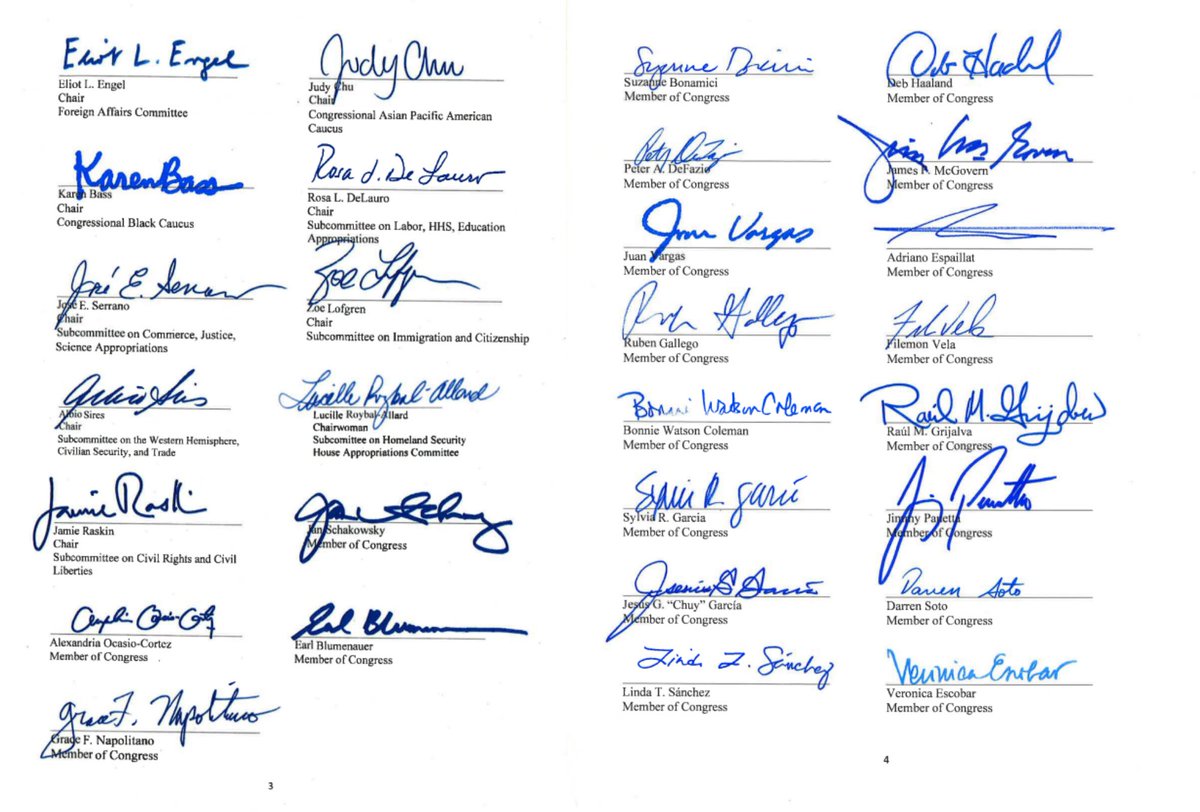 Eliot L. Engel
Eliot L. Engel
Chair
Foreign Affairs Committee
Judy Chu
Judy Chu
Chair
Congressional Asian Pacific American
Caucus
Karen Bass
Karen Bass
Chair
Congressional Black Caucus
Rosa L. De Lauro
Rosa L. DeLauro
Chair
Subcommittee on Labor, HHS, Education
Appropriations
José E. Serrano
José E. Serrano
Chair
Subcommittee on Commerce, Justice,
Science Appropriations
Zoe Lofgren
Zoe Lofgren
Chair
Subcommittee on Immigration and Citizenship
Albio Sires
Albio Sires
Chair
Subcommittee on the Western Hemisphere,
Civilian Security, and Trade
Lucille Roybal-Allard
Lucille Roybal-Allard
Chairwoman
Subcommittee on Homeland Security
House Appropriations Committee
Jamie Raskin
Jamie Raskin
Chair
Subcommittee on Civil Rights and Civil
Liberties
Jan Schakowsky
Jan Schakowsky
Member of Congress
Alexandria Ocasio-Cortez
Member of Congress
Earl Blumenauer
Earl Blumenauer
Member of Congress
Grace F. Napolitano
Grace F. Napolitano
Member of Congress
3
Suzanne Bonamici
Suzanne Bonamici
Member of Congress
Deb Haaland
Deb Haaland
Member of Congress
Peter A. DeFazio
Member of Congress
Jim McGovern
James P. McGovern
Member of Congress
Juan Vargas
Juan Vargas
Member of Congress
Adriano Espaillat
Member of Congress
Ruben Gallego
Ruben Gallego
Member of Congress
Fil Vela
Filemon Vela
Member of Congress
Bonnie Watson Coleman
Bonnie Watson Coleman
Member of Congress
Raúl M. Grijalva
Raúl M. Grijalva
Member of Congress
Sylvia R. Garcia
Sylvia R. Garcia
Member of Congress
Jimmy Panetta
Jimmy Panetta
Member of Congress
Jesús G. García
Jesús G. "Chuy" García
Member of Congress
Darren Soto
Darren Soto
Member of Congress
Linda T. Sánchez
Linda T. Sánchez
Member of Congress
Veronica Escobar
Veronica Escobar
Member of Congress
4